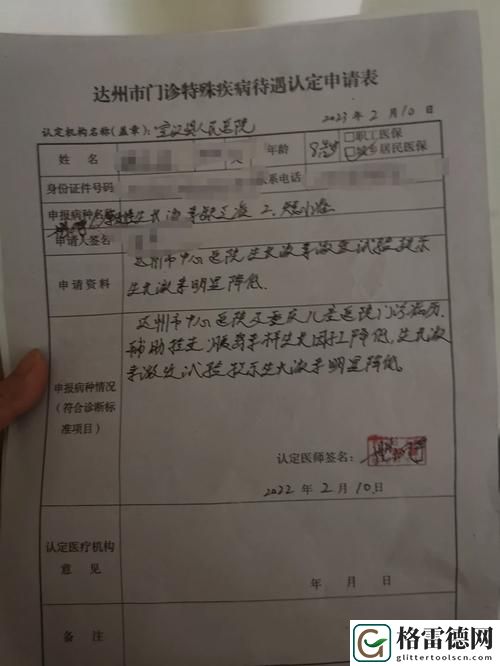 达州市门诊特殊疾病待遇认定申请表
认定机构名称(盖章): 宣汉县人民医院 2023 年 2 月 10 日
姓 名 年龄 8岁 □职工医保
□城乡居民医保
身份证件号码 系电话
申报病种名称 生长激素缺乏症 2.
申请人签名
申请资料
达州市中心医院生长激素激发试验提示
生长激素明显降低.
申报病种情况
(符合诊断标
准项目)
达州市中心医院及重庆儿童医院门诊病历.
辅助检查:胰岛素样生长因子降低.生长激
素激发试验提示生长激素明显降低.
认定医师签名:
2022 年 2 月 10 日
认定医疗机构
意 见
年 月 日
备 注
格雷德网
glittertoolscn.com